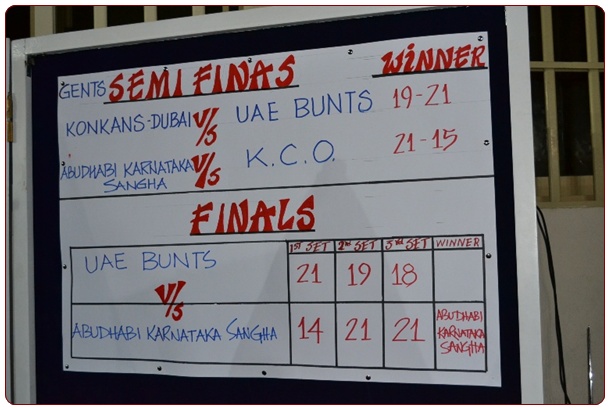 GENTS SEMI FINAS WINNER
KONKANS-DUBAI V/S UAE BUNTS 19-21
ABUDHABI KARNATAKA SANGHA V/S K.C.O. 21-15
FINALS
1ST SET 2ND SET 3RD SET WINNER
UAE BUNTS 21 19 18
V/S
ABUDHABI KARNATAKA SANGHA 14 21 21 ABUDHABI KARNATAKA SANGHA